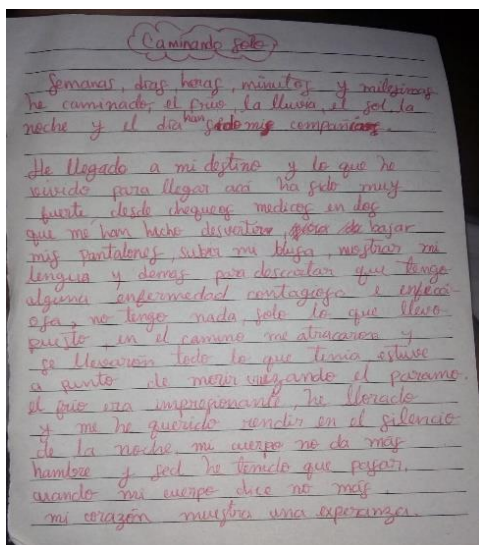 Caminando solo
Semanas, dias, horas, minutos y milesimas
he caminado, el frio, la lluvia, el sol, la
noche y el dia han sido mis compañias.
He llegado a mi destino y lo que he
vivido para llegar aca ha sido muy
fuerte, desde chequeos medicos en dos
que me han hecho desvestirme, bajar
mis pantalones, subir mi blusa, mostrar mi
lengua y demas para descartar que tengo
alguna enfermedad contagiosa e infecci
osa, no tengo nada, solo lo que llevo
puesto, en el camino me atracaron y
se llevaron todo lo que tenia estuve
a punto de morir cruzando el paramo.
el frio era impresionante, he llorado
y me he querido rendir en el silencio
de la noche, mi cuerpo no da más
hambre y sed he tenido que pasar,
cuando mi cuerpo dice no más,
mi corazón muestra una esperanza.